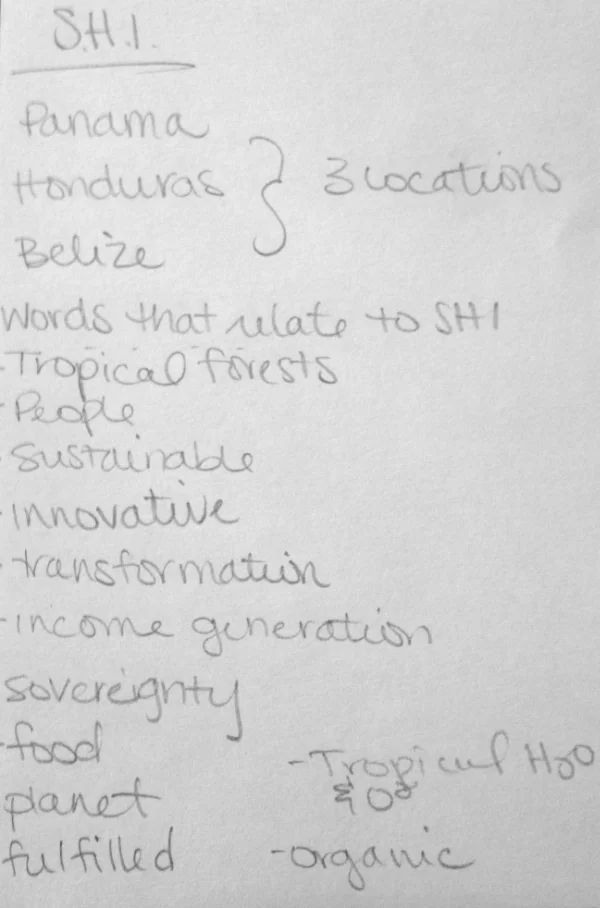 S.H.I.
Panama
Honduras } 3 locations
Belize
Words that relate to SHI
-Tropical forests
-People
-Sustainable
-innovative
-transformation
-income generation
sovereignty
-food
-Tropical H2O
planet
& O2
fulfilled
-organic